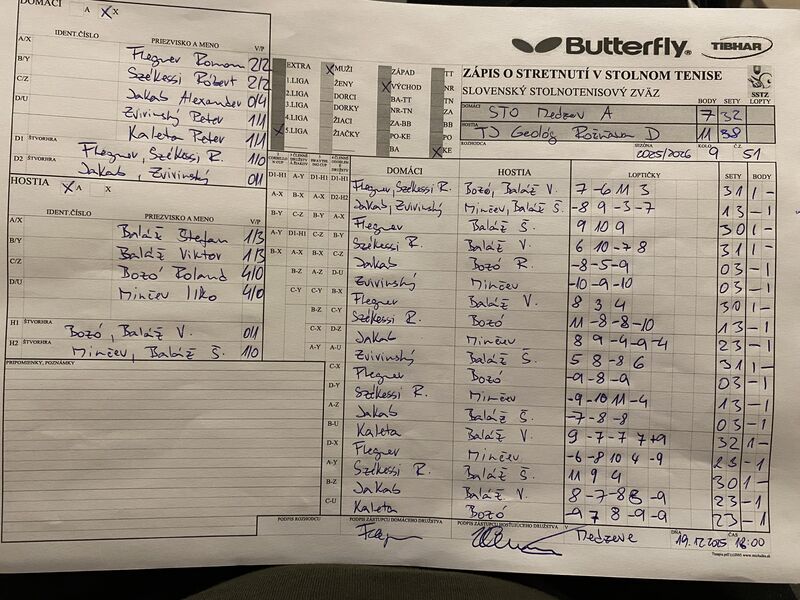 DOMÁCI A X X
IDENT.ČÍSLO PRIEZVISKO A MENO V/P
A/X Flegner Roman 2/2
B/Y Székessi Róbert 2/2
C/Z Jakab Alexander 0/4
D/U Zvivinský Peter 1/1
Kaleta Peter 1/1
D1 ŠTVORHRA Flegner, Székessi R. 1/0
D2 ŠTVORHRA Jakab, Zvivinský 0/1
HOSTIA X A X
IDENT.ČÍSLO PRIEZVISKO A MENO V/P
A/X Baláž Štefan 1/3
B/Y Baláž Viktor 1/3
C/Z Bozó Roland 4/0
D/U Minčev Ilko 4/0
H1 ŠTVORHRA Bozó, Baláž V. 0/1
H2 ŠTVORHRA Minčev, Baláž Š. 1/0
PRIPOMIENKY, POZNÁMKY
EXTRA X MUŽI ZÁPAD TT
1.LIGA ŽENY X VÝCHOD NR
2.LIGA DORCI BA-TT TN
3.LIGA DORKY NR-TN ZA
4.LIGA ŽIACI ZA-BB BB
X 5.LIGA ŽIAČKY PO-KE PO
BA X KE
Butterfly® TIBHAR
ZÁPIS O STRETNUTÍ V STOLNOM TENISE
SLOVENSKÝ STOLNOTENISOVÝ ZVÄZ
SSTZ
BODY SETY LOPTY
DOMÁCI STO Medzev A 7 32
HOSTIA TJ Geológ Rožňava D 11 38
ROZHODCA SEZÓNA 2025/2026 KOLO 9 Č.Z. 51
DOMÁCI HOSTIA LOPTIČKY SETY BODY
Flegner, Székessi R. Bozó, Baláž V. 7 -6 11 3 3 1 1 -
Jakab, Zvivinský Minčev, Baláž Š. -8 9 -3 -7 1 3 - 1
Flegner Baláž Š. 9 10 9 3 0 1 -
Székessi R. Baláž V. 6 10 -7 8 3 1 1 -
Jakab Bozó R. -8 -5 -9 0 3 - 1
Zvivinský Minčev -10 -9 -10 0 3 - 1
Flegner Baláž V. 8 3 4 3 0 1 -
Székessi R. Bozó 11 -8 -8 -10 1 3 - 1
Jakab Minčev 8 9 -4 -9 -4 2 3 - 1
Zvivinský Baláž Š. 5 8 -8 6 3 1 1 -
Flegner Bozó -9 -8 -9 0 3 - 1
Székessi R. Minčev -9 -10 11 -4 1 3 - 1
Jakab Baláž Š. -7 -8 -8 0 3 - 1
Kaleta Baláž V. 9 -7 -7 7 9 3 2 1 -
Flegner Minčev -6 -8 10 4 -9 2 3 - 1
Székessi R. Baláž Š. 11 9 4 3 0 1 -
Jakab Baláž V. 8 -7 -8 8 -9 2 3 - 1
Kaleta Bozó -9 7 8 -9 -9 2 3 - 1
PODPIS ROZHODCU PODPIS ZÁSTUPCU DOMÁCEHO DRUŽSTVA PODPIS ZÁSTUPCU HOSŤUJÚCEHO DRUŽSTVA V Medzeve DŇA 19.12.2025 ČAS 18:00